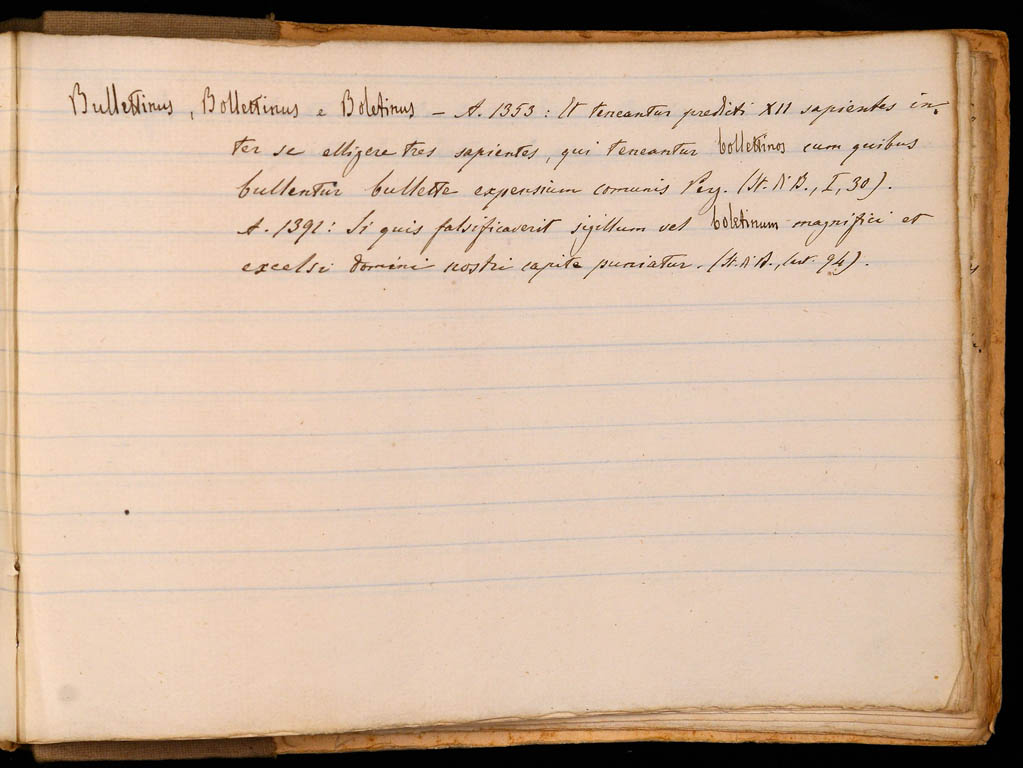 Bullettinus, Bollettinus e Boletinus – A. 1353: Et teneantur predicti XII sapientes in-
ter se elligere tres sapientes, qui teneantur bollettinos cum quibus
bullentur bullette expensium comunis Reg. (St. d. B., I, 30).
A. 1391: Si quis falsificaverit sigillum vel boletinum magnifici et
excelsi domini nostri capite puniatur. (St. d. D., cart. 94).